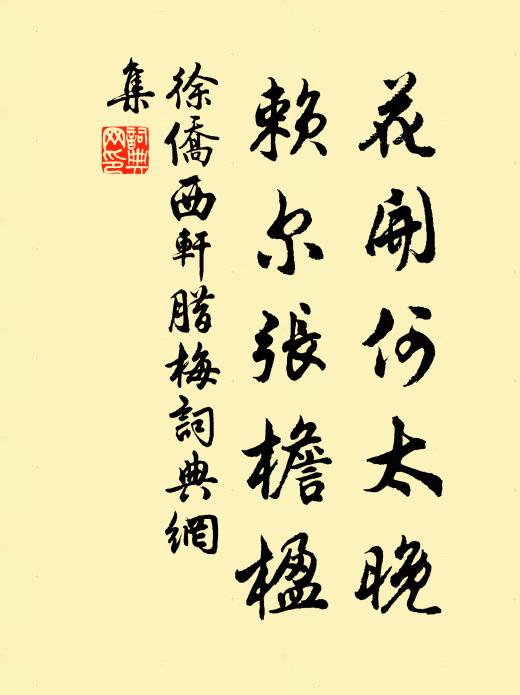 花開何太晚
賴尔張檐楹
徐僑西軒腊梅詞典網
集
詞典
网印